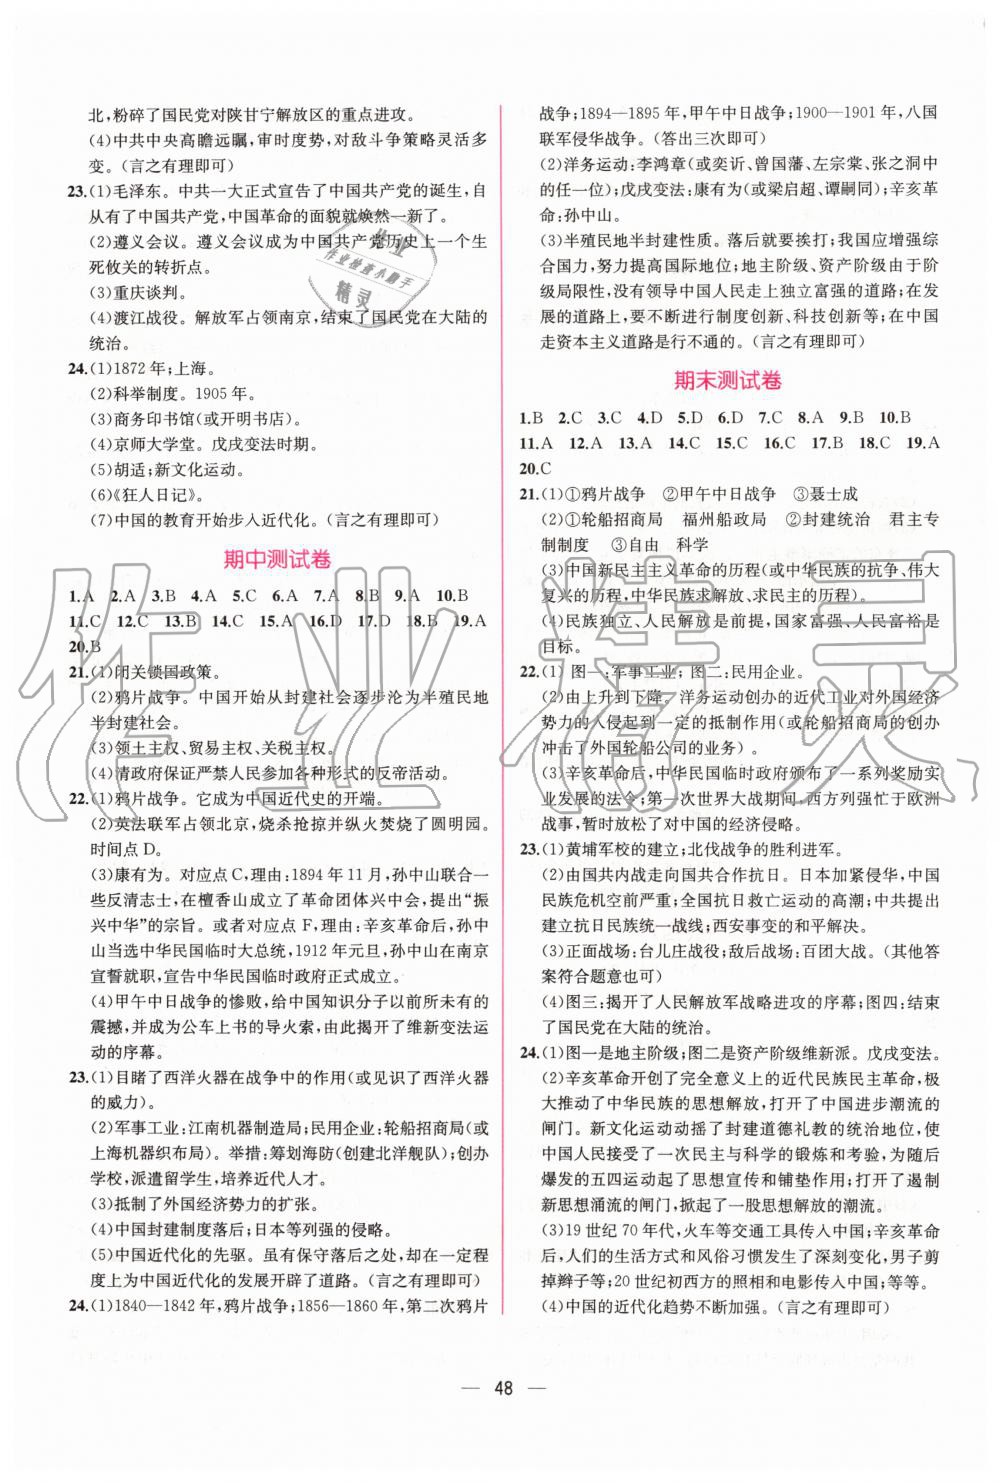 北,粉碎了国民党对陕甘宁解放区的重点进攻。
(4)中共中央高瞻远瞩,审时度势,对敌斗争策略灵活多
变。(言之有理即可)
23.(1)毛泽东。中共一大正式宣告了中国共产党的诞生,自
从有了中国共产党,中国革命的面貌就焕然一新了。
(2)遵义会议。遵义会议成为中国共产党历史上一个生
死攸关的转折点。
(3)重庆谈判。
(4)渡江战役。解放军占领南京,结束了国民党在大陆的
统治。
24.(1)1872年;上海。
(2)科举制度。1905年。
(3)商务印书馆(或开明书店)。
(4)京师大学堂。戊戌变法时期。
(5)胡适;新文化运动。
(6)《狂人日记》。
(7)中国的教育开始步入近代化。(言之有理即可)
期中测试卷
1.A 2.A 3.B 4.A 5.C 6.A 7.A 8.B 9.A 10.B
11.C 12.C 13.B 14.C 15.A 16.D 17.D 18.B 19.A
20.B
21.(1)闭关锁国政策。
(2)鸦片战争。中国开始从封建社会逐步沦为半殖民地
半封建社会。
(3)领土主权、贸易主权、关税主权。
(4)清政府保证严禁人民参加各种形式的反帝活动。
22.(1)鸦片战争。它成为中国近代史的开端。
(2)英法联军占领北京,烧杀抢掠并纵火焚烧了圆明园。
时间点D。
(3)康有为。对应点C,理由:1894年11月,孙中山联合一
些反清志士,在檀香山成立了革命团体兴中会,提出“振
兴中华”的宗旨。或者对应点F,理由:辛亥革命后,孙中
山当选中华民国临时大总统,1912年元旦,孙中山在南京
宣誓就职,宣告中华民国临时政府正式成立。
(4)甲午中日战争的惨败,给中国知识分子以前所未有的
震撼,并成为公车上书的导火索,由此揭开了维新变法运
动的序幕。
23.(1)目睹了西洋火器在战争中的作用(或见识了西洋火器
的威力)。
(2)军事工业:江南机器制造局;民用企业:轮船招商局(或
上海机器织布局)。举措:筹划海防(创建北洋舰队);创办
学校,派遣留学生,培养近代人才。
(3)抵制了外国经济势力的扩张。
(4)中国封建制度落后;日本等列强的侵略。
(5)中国近代化的先驱。虽有保守落后之处,却在一定程
度上为中国近代化的发展开辟了道路。(言之有理即可)
24.(1)1840—1842年,鸦片战争;1856—1860年,第二次鸦片
战争;1894—1895年,甲午中日战争;1900—1901年,八国
联军侵华战争。(答出三次即可)
(2)洋务运动:李鸿章(或奕䜣、曾国藩、左宗棠、张之洞中
的任一位);戊戌变法:康有为(或梁启超、谭嗣同);辛亥革
命:孙中山。
(3)半殖民地半封建性质。落后就要挨打;我国应增强综
合国力,努力提高国际地位;地主阶级、资产阶级由于阶
级局限性,没有领导中国人民走上独立富强的道路;在发
展的道路上,要不断进行制度创新、科技创新等;在中国
走资本主义道路是行不通的。(言之有理即可)
期末测试卷
1.B 2.C 3.C 4.D 5.D 6.D 7.C 8.A 9.B 10.B
11.A 12.A 13.A 14.C 15.C 16.C 17.B 18.C 19.A
20.C
21.(1)①鸦片战争 ②甲午中日战争 ③聂士成
(2)①轮船招商局 福州船政局 ②封建统治 君主专
制制度 ③自由 科学
(3)中国新民主主义革命的历程(或中华民族的抗争、伟大
复兴的历程,中华民族求解放、求民主的历程)。
(4)民族独立、人民解放是前提,国家富强、人民富裕是
目标。
22.(1)图一:军事工业;图二:民用企业。
(2)由上升到下降。洋务运动创办的近代工业对外国经济
势力的入侵起到一定的抵制作用(或轮船招商局的创办
冲击了外国轮船公司的业务)。
(3)辛亥革命后,中华民国临时政府颁布了一系列奖励实
业发展的法令;第一次世界大战期间,西方列强忙于欧洲
战事,暂时放松了对中国的经济侵略。
23.(1)黄埔军校的建立;北伐战争的胜利进军。
(2)由国共内战走向国共合作抗日。日本加紧侵华,中国
民族危机空前严重;全国抗日救亡运动的高潮;中共提出
建立抗日民族统一战线;西安事变的和平解决。
(3)正面战场:台儿庄战役;敌后战场:百团大战。(其他答
案符合题意也可)
(4)图三:揭开了人民解放军战略进攻的序幕;图四:结束
了国民党在大陆的统治。
24.(1)图一是地主阶级;图二是资产阶级维新派。戊戌变法。
(2)辛亥革命开创了完全意义上的近代民族民主革命,极
大推动了中华民族的思想解放,打开了中国进步潮流的
闸门。新文化运动动摇了封建道德礼教的统治地位,使
中国人民经历了一次民主与科学的锻炼和考验,为随后
爆发的五四运动起了思想宣传和铺垫作用;打开了遏制
新思想涌流的闸门,掀起了一股思想解放的潮流。
(3)19世纪70年代,火车等交通工具传入中国;辛亥革命
后,人们的生活方式和风俗习惯发生了深刻变化,男子剪
掉辫子等;20世纪初西方的照相和电影传入中国;等等。
(4)中国的近代化趋势不断加强。(言之有理即可)
— 48 —
作业
作业检查小助手
精灵
作业精灵